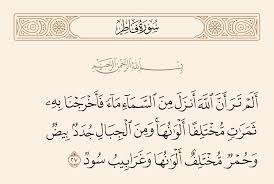 سُورَةُ فَاطِرٍ
بِسْمِ اللَّهِ الرَّحْمَٰنِ الرَّحِيمِ
أَلَمْ تَرَ أَنَّ اللَّهَ أَنزَلَ مِنَ السَّمَاءِ مَاءً فَأَخْرَجْنَا بِهِۦ
ثَمَرَٰتٍ مُّخْتَلِفًا أَلْوَٰنُهَا ۚ وَمِنَ الْجِبَالِ جُدَدٌۢ بِيضٌ
وَحُمْرٌ مُّخْتَلِفٌ أَلْوَٰنُهَا وَغَرَابِيبُ سُودٌ ٢٧